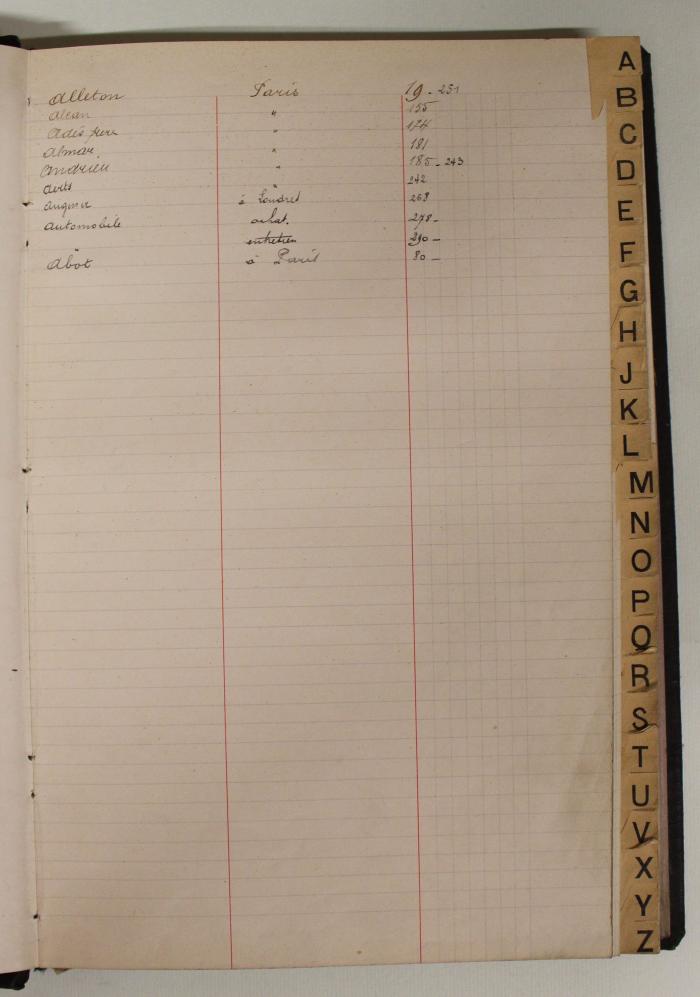 Alleton Paris 19 - 251
Alcan " 155
Adès frère " 174
Almar " 181
Andrieu " 185 - 243
Arts " 242
à Londres 268
Automobile achat. 278 -
entretien 290 -
Abot à Paris 80 -
A
B
C
D
E
F
G
H
J
K
L
M
N
O
P
Q
R
S
T
U
V
X
Y
Z